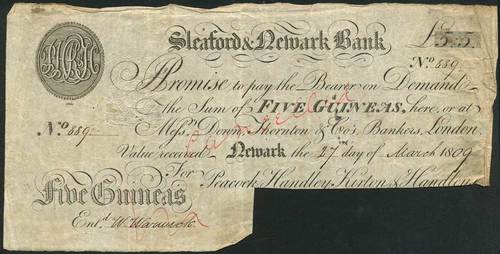 Sleaford & Newark Bank
£5"5"
No. 889
I Promise to pay the Bearer on Demand
the Sum of FIVE GUINEAS, here, or at
No. 889 Mess.rs Down, Thornton & Co's, Bankers, London.
Cancelled
Value received Newark the 27 day of March 1809
For
Peacock, Handley, Kirton & Handley
Five Guineas
Ent.d W. Warwick